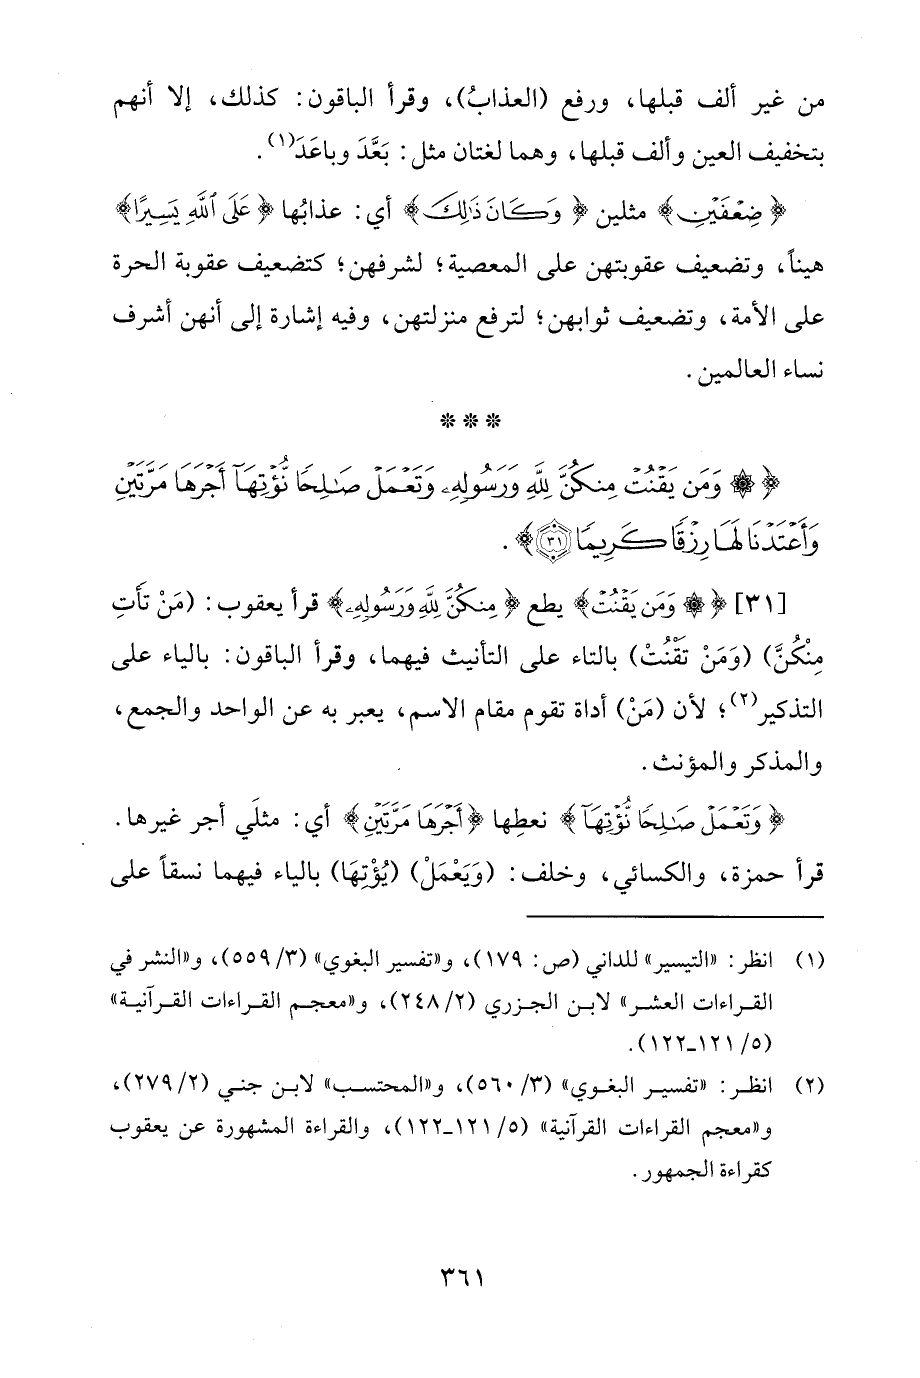 من غير ألف قبلها، ورفع (العذابُ)، وقرأ الباقون: كذلك، إلا أنهم
بتخفيف العين وألف قبلها، وهما لغتان مثل: بَعَّدَ وباعَدَ(١).
﴿ضِعْفَيْنِ﴾ مثلين ﴿وَكَانَ ذَٰلِكَ﴾ أي: عذابُها ﴿عَلَى ٱللَّهِ يَسِيرًا﴾
هيناً، وتضعيف عقوبتهن على المعصية؛ لشرفهن؛ كتضعيف عقوبة الحرة
على الأمة، وتضعيف ثوابهن؛ لترفع منزلتهن، وفيه إشارة إلى أنهن أشرف
نساء العالمين.
* * *
﴿۞ وَمَن يَقْنُتْ مِنكُنَّ لِلَّهِ وَرَسُولِهِۦ وَتَعْمَلْ صَـٰلِحًا نُّؤْتِهَآ أَجْرَهَا مَرَّتَيْنِ
وَأَعْتَدْنَا لَهَا رِزْقًا كَرِيمًا ٣١﴾.
[٣١] ﴿۞ وَمَن يَقْنُتْ﴾ يطع ﴿مِنكُنَّ لِلَّهِ وَرَسُولِهِۦ﴾ قرأ يعقوب: (مَنْ تَأْتِ
مِنْكُنَّ) (وَمَنْ تَقْنُتْ) بالتاء على التأنيث فيهما، وقرأ الباقون: بالياء على
التذكير(٢)؛ لأن (مَنْ) أداة تقوم مقام الاسم، يعبر به عن الواحد والجمع،
والمذكر والمؤنث.
﴿وَتَعْمَلْ صَـٰلِحًا نُّؤْتِهَآ﴾ نعطِها ﴿أَجْرَهَا مَرَّتَيْنِ﴾ أي: مثلَي أجر غيرها.
قرأ حمزة، والكسائي، وخلف: (وَيَعْمَلْ) (يُؤْتِهَا) بالياء فيهما نسقاً على
(١) انظر: «التيسير» للداني (ص: ١٧٩)، و«تفسير البغوي» (٣/ ٥٥٩)، و«النشر في
القراءات العشر» لابن الجزري (٢/ ٢٤٨)، و«معجم القراءات القرآنية»
(٥/ ١٢١_١٢٢).
(٢) انظر: «تفسير البغوي» (٣/ ٥٦٠)، و«المحتسب» لابن جني (٢/ ٢٧٩)،
و«معجم القراءات القرآنية» (٥/ ١٢١_١٢٢)، والقراءة المشهورة عن يعقوب
كقراءة الجمهور.
٣٦١